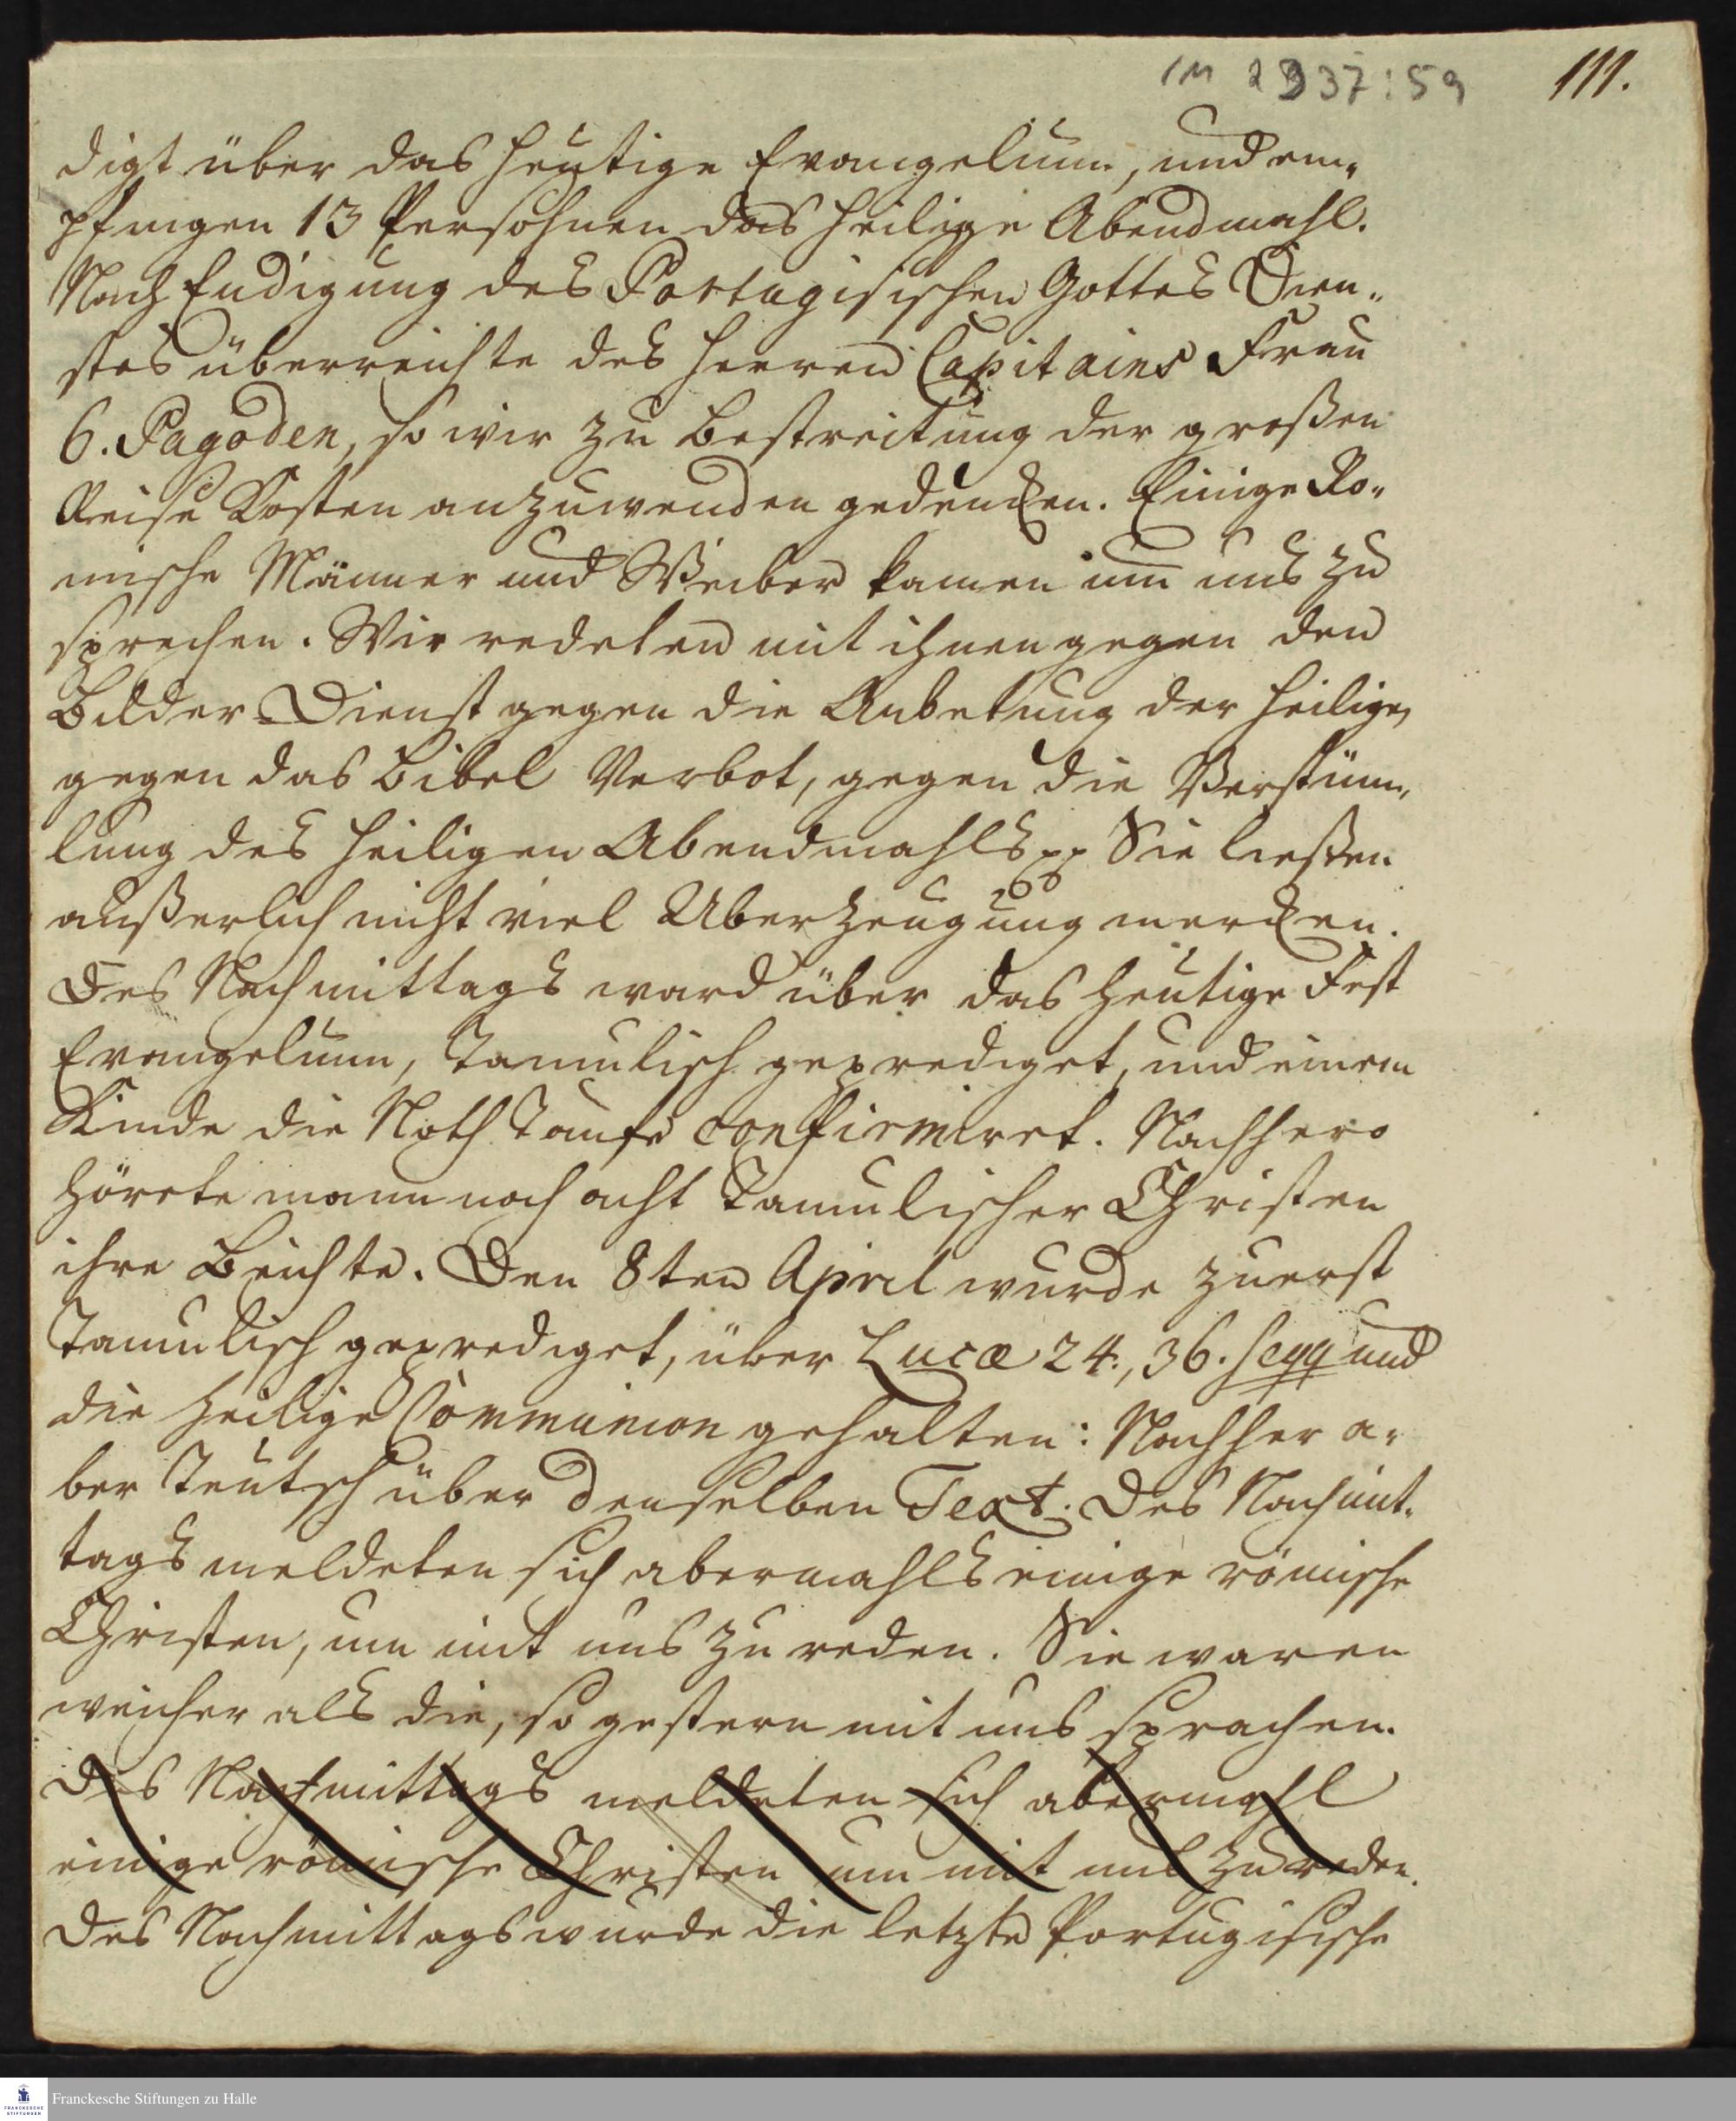 1M 2937:59 111.
digt über das heutige Evangelium, und em„
pfingen 13 Persohnen das heilige Abendmahl.
Nach Endigung des Portugisischen Gottes Dien„
stes überreichte des Herren Capitains Frau
6. Pagoden, so wir zu Bestreitung der großen
Reise Kosten anzuwenden gedencken. Einige Ro„
mische Männer und Weiber kamen um uns zu
sprechen. Wir redeten mit ihnen gegen den
Bilder-Dienst gegen die Anbetung der Heilige,
gegen das Bibel Verbot, gegen die Verstüm„
lung des heiligen Abendmahls pp Sie ließen
außerlich nicht viel Uberzeugung mercken.
Des Nachmittags ward über das heutige Fest
Evangelium, Tamulisch geprediget, und einem
Kinde die Noth Taufe confirmiret. Nachhero
hörete mann noch acht Tamulischer Christen
ihre Beichte. Den 8ten April wurde zuerst
Tamulisch geprediget, über Lucæ 24., 36. seqq und
die heilige Communion gehalten: Nachher a„
ber Teutsch über denselben Text. Des Nachmit„
tags meldeten sich abermahls einige römische
Christen, um mit uns zu reden. Sie waren
weicher als die, so gestern mit uns sprachen.
Des Nachmittags meldeten sich abermahl
einige römische Christen um mit uns zu reden.
Des Nachmittags wurde die letzte Portugisische
Franckesche Stiftungen zu Halle
FRANCKESCHE
STIFTUNGEN